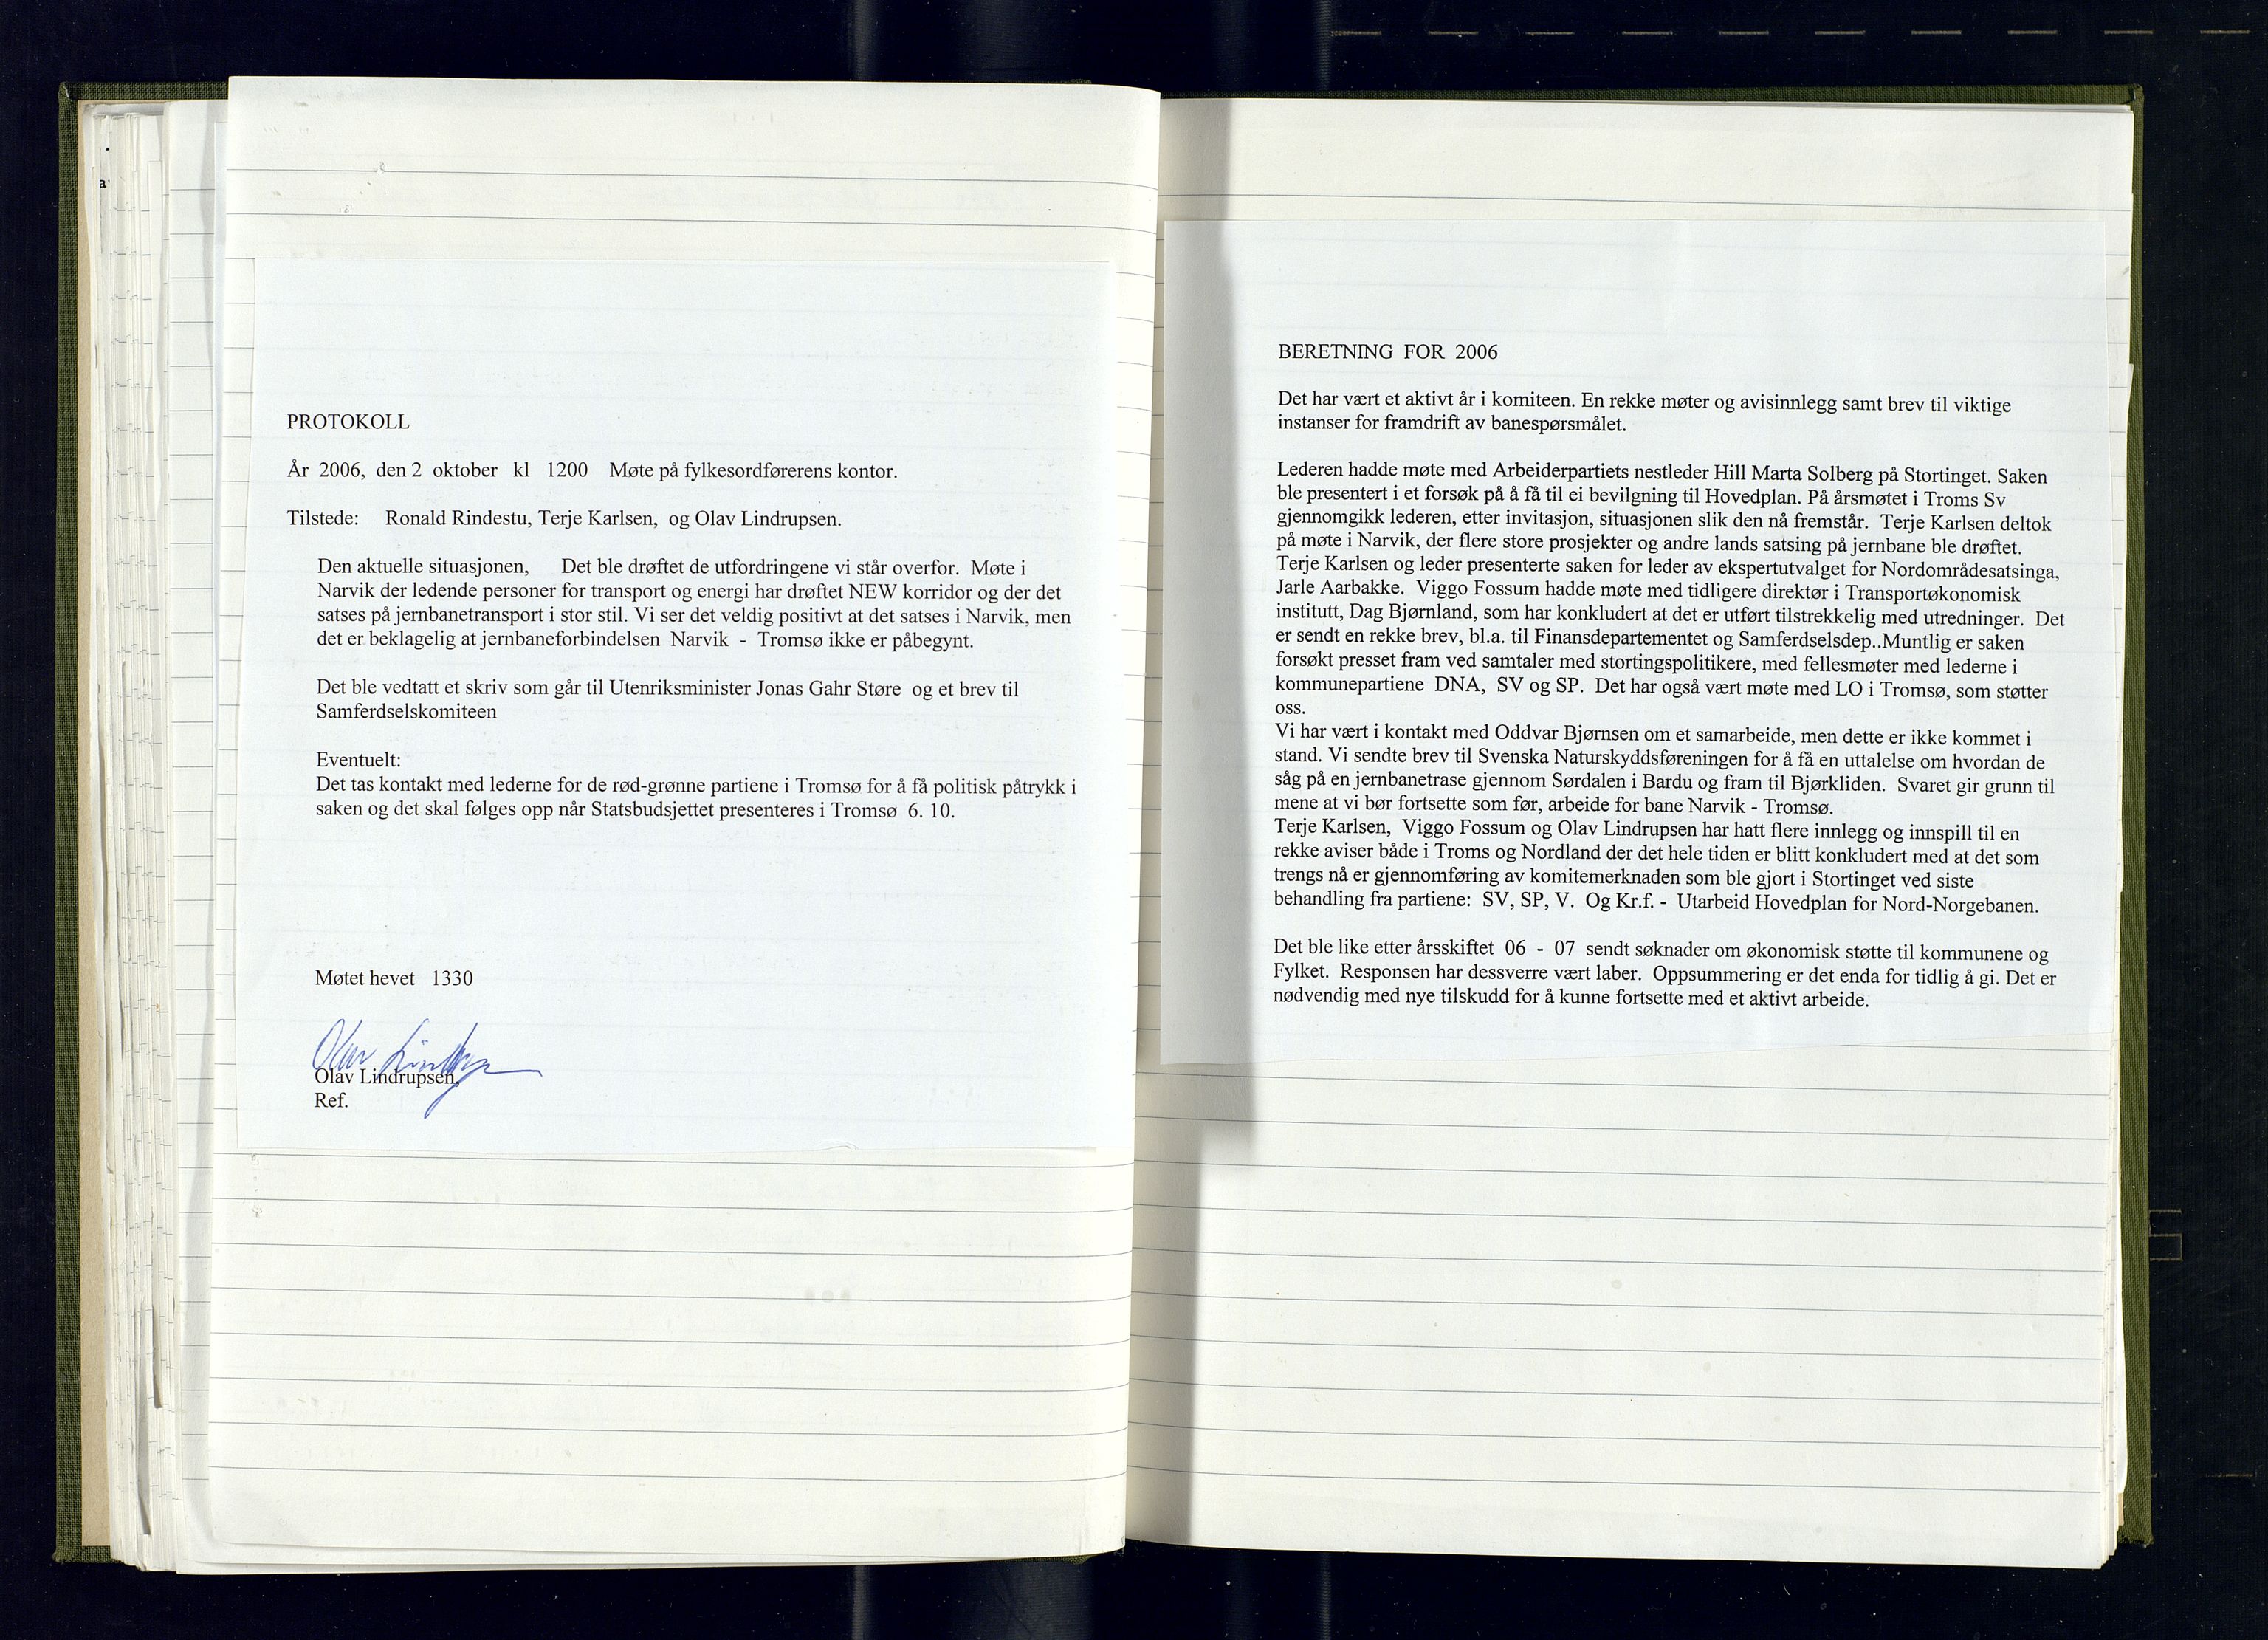 PROTOKOLL
År 2006, den 2 oktober kl 1200 Møte på fylkesordførerens kontor.
Tilstede: Ronald Rindestu, Terje Karlsen, og Olav Lindrupsen.
Den aktuelle situasjonen, Det ble drøftet de utfordringene vi står overfor. Møte i
Narvik der ledende personer for transport og energi har drøftet NEW korridor og der det
satses på jernbanetransport i stor stil. Vi ser det veldig positivt at det satses i Narvik, men
det er beklagelig at jernbaneforbindelsen Narvik - Tromsø ikke er påbegynt.
Det ble vedtatt et skriv som går til Utenriksminister Jonas Gahr Støre og et brev til
Samferdselskomiteen
Eventuelt:
Det tas kontakt med lederne for de rød-grønne partiene i Tromsø for å få politisk påtrykk i
saken og det skal følges opp når Statsbudsjettet presenteres i Tromsø 6. 10.
Møtet hevet 1330
Olav Lindrupsen
Olav Lindrupsen,
Ref.
BERETNING FOR 2006
Det har vært et aktivt år i komiteen. En rekke møter og avisinnlegg samt brev til viktige
instanser for framdrift av banespørsmålet.
Lederen hadde møte med Arbeiderpartiets nestleder Hill Marta Solberg på Stortinget. Saken
ble presentert i et forsøk på å få til ei bevilgning til Hovedplan. På årsmøtet i Troms Sv
gjennomgikk lederen, etter invitasjon, situasjonen slik den nå fremstår. Terje Karlsen deltok
på møte i Narvik, der flere store prosjekter og andre lands satsing på jernbane ble drøftet.
Terje Karlsen og leder presenterte saken for leder av ekspertutvalget for Nordområdesatsinga,
Jarle Aarbakke. Viggo Fossum hadde møte med tidligere direktør i Transportøkonomisk
institutt, Dag Bjørnland, som har konkludert at det er utført tilstrekkelig med utredninger. Det
er sendt en rekke brev, bl.a. til Finansdepartementet og Samferdselsdep..Muntlig er saken
forsøkt presset fram ved samtaler med stortingspolitikere, med fellesmøter med lederne i
kommunepartiene DNA, SV og SP. Det har også vært møte med LO i Tromsø, som støtter
oss.
Vi har vært i kontakt med Oddvar Bjørnsen om et samarbeide, men dette er ikke kommet i
stand. Vi sendte brev til Svenska Naturskyddsføreningen for å få en uttalelse om hvordan de
såg på en jernbanetrase gjennom Sørdalen i Bardu og fram til Bjørkliden. Svaret gir grunn til
mene at vi bør fortsette som før, arbeide for bane Narvik - Tromsø.
Terje Karlsen, Viggo Fossum og Olav Lindrupsen har hatt flere innlegg og innspill til en
rekke aviser både i Troms og Nordland der det hele tiden er blitt konkludert med at det som
trengs nå er gjennomføring av komitemerknaden som ble gjort i Stortinget ved siste
behandling fra partiene: SV, SP, V. Og Kr.f. - Utarbeid Hovedplan for Nord-Norgebanen.
Det ble like etter årsskiftet 06 - 07 sendt søknader om økonomisk støtte til kommunene og
Fylket. Responsen har dessverre vært laber. Oppsummering er det enda for tidlig å gi. Det er
nødvendig med nye tilskudd for å kunne fortsette med et aktivt arbeide.